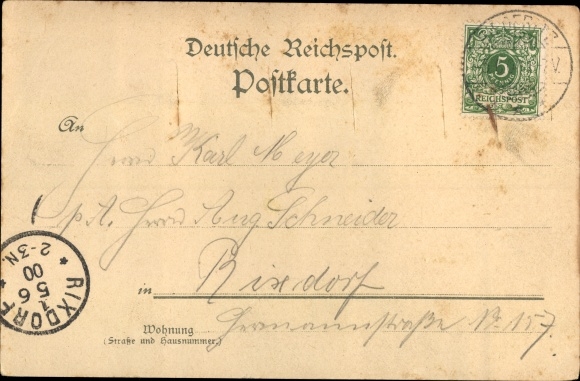 Deutsche Reichspost.
Postkarte.
5
REICHSPOST
An
Herrn Karl Meyer
p. A. Herrn Aug Schneider
in Rixdorf
Wohnung
(Straße und Hausnummer.)
Hermannstraße No. 157.
RIXDORF
1 6
5
00
2-3N.